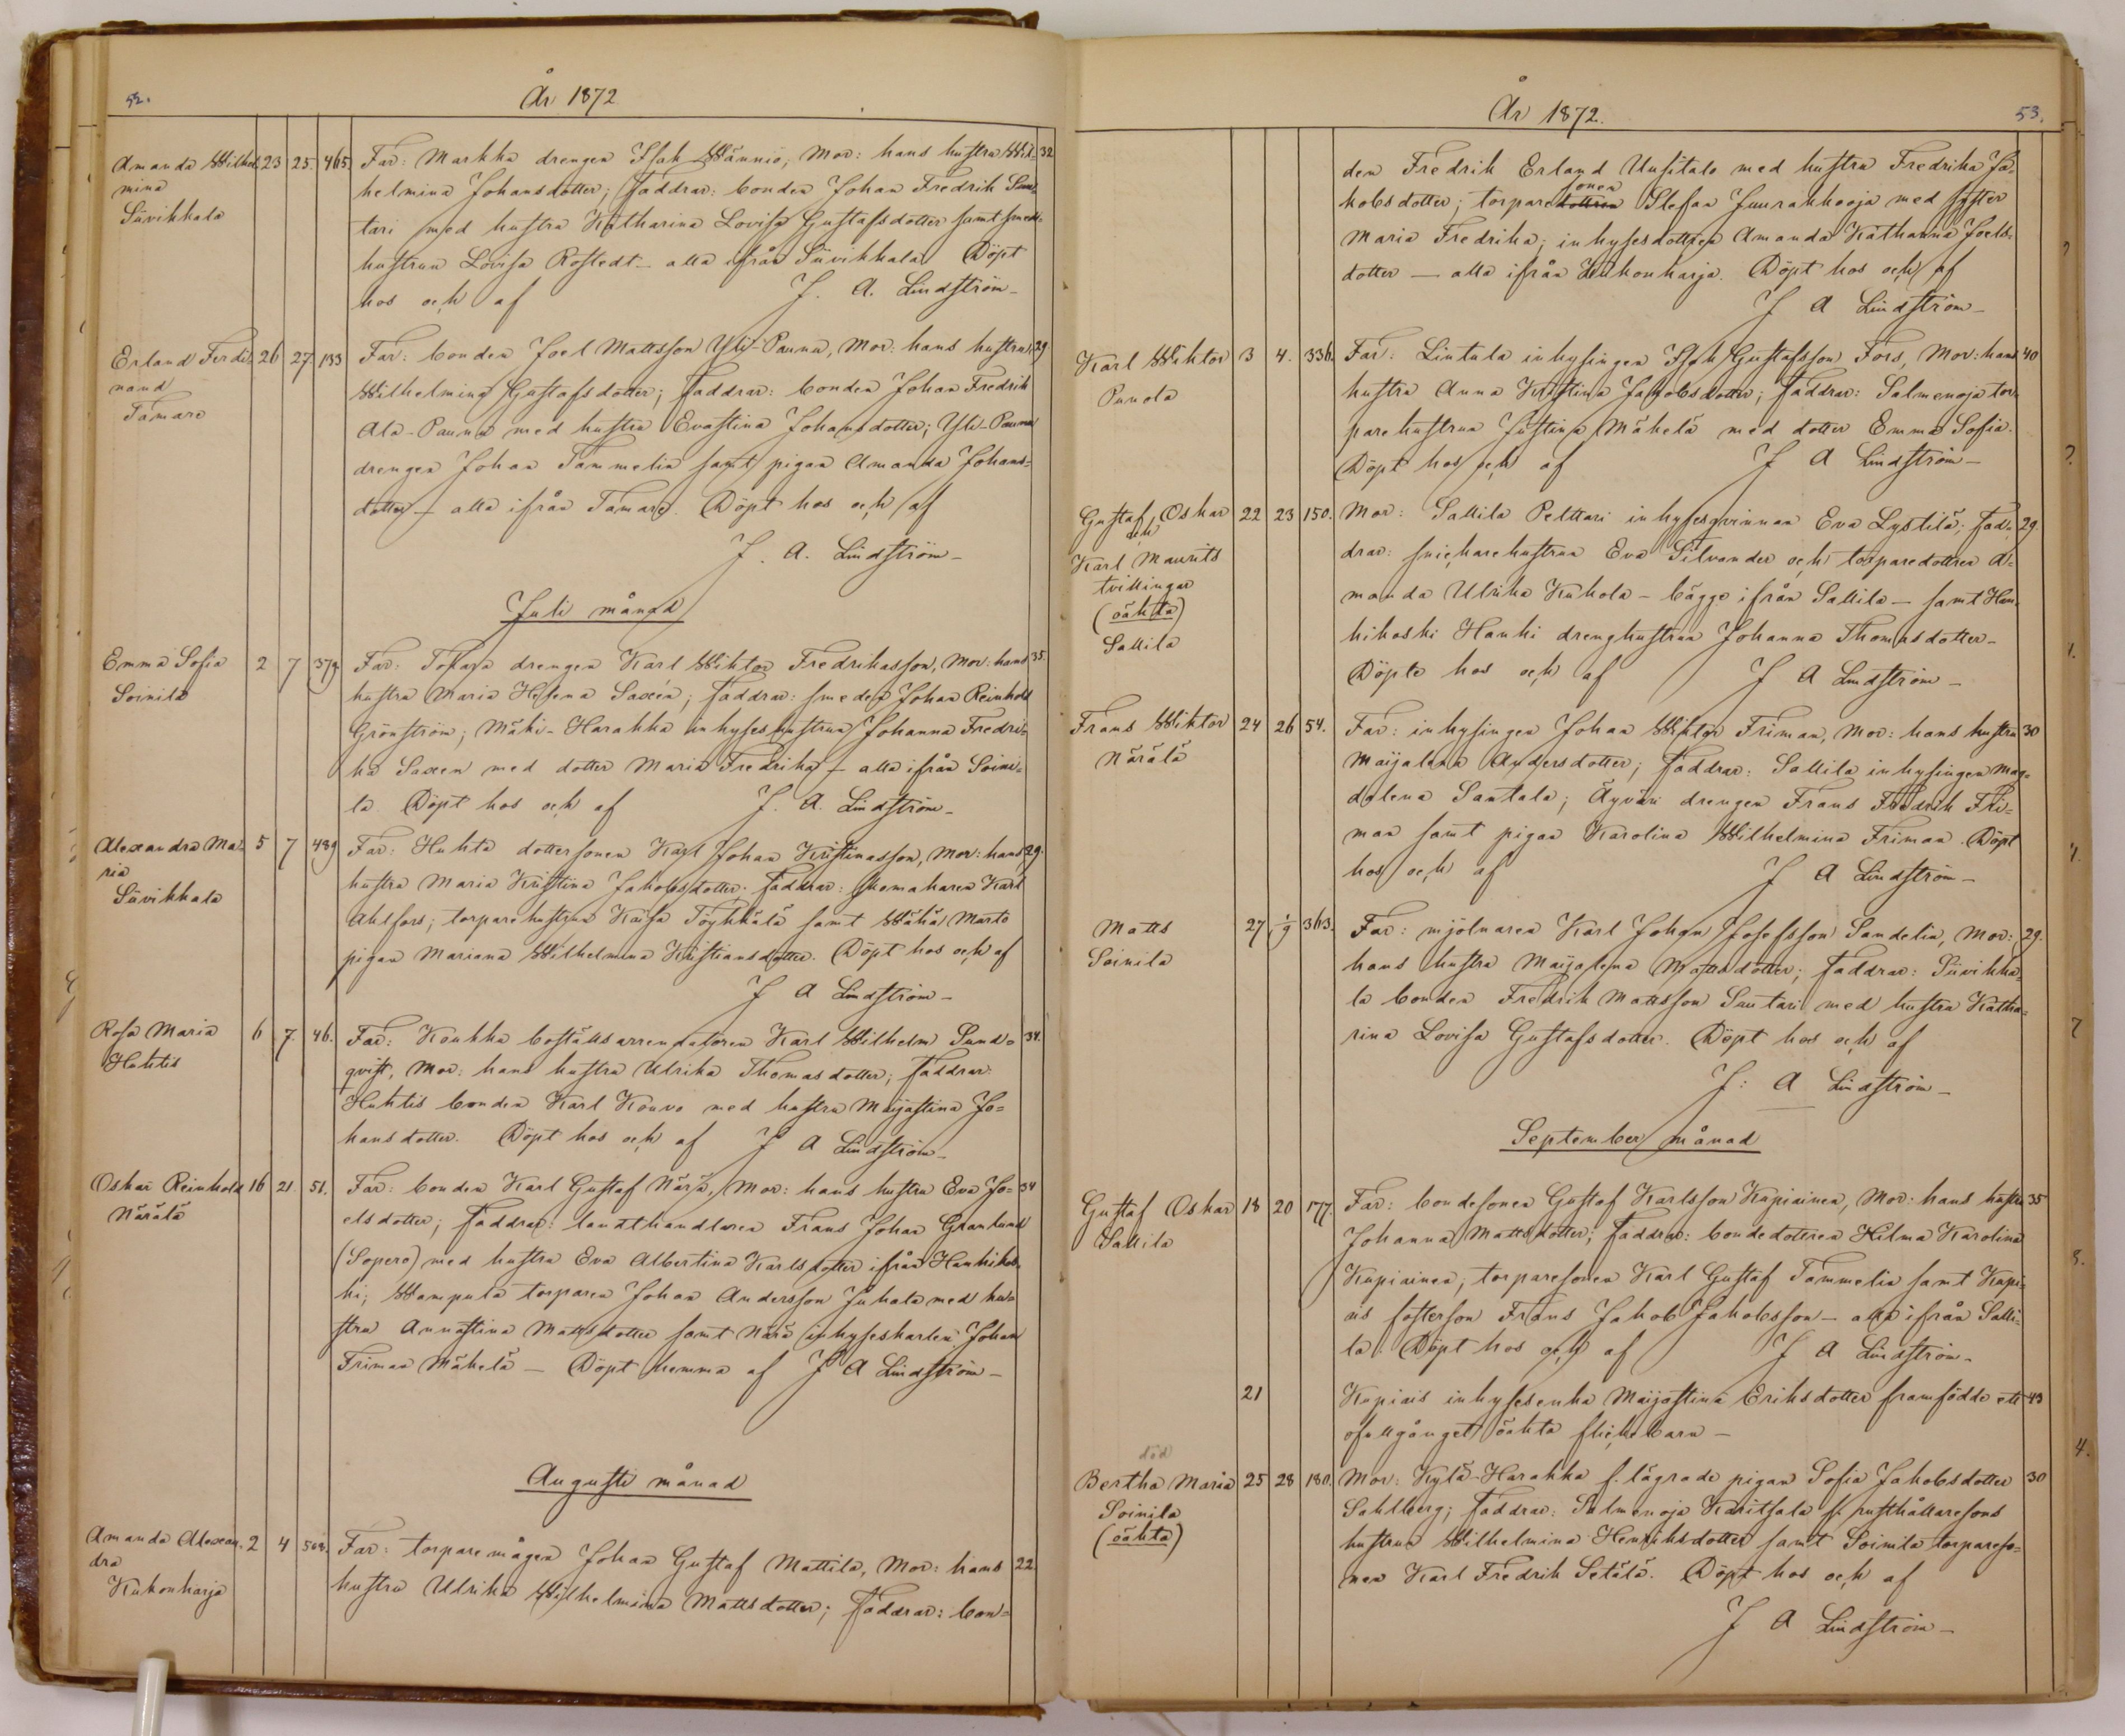 52.
År 1872
Amanda Wilhel- 23 25. 465. Far: Markka drengen Isak Männiö, Mor: hans hustru Wil- 32
mina helmina Johansdotter; faddrar: bonden Johan Fredrik Suu-
Siivikkala tari med hustru Katharina Lovisa Gustafsdotter samt smeds-
hustrun Lovisa Rostedt – alla ifrån Siivikkala. Döpt
hos och af J. A. Lindström –
Erland Ferdi- 26 27 133 Far: bonden Joel Mattsson Yli-Pauna, Mor: hans hustru 29
nand Wilhelmina Gustafsdotter; faddrar: bonden Johan Fredrik
Tamare Ala-Pauna med hustru Evastina Johansdotter; Yli-Pauna
drengen Johan Tammelin samt pigan Amanda Johans-
dotter – alla ifrån Tamare. Döpt hos och af
J. A. Lindström –
Juli månad
Emma Sofia 2 7 379 Far: drengen Karl Wiktor Fredrikasson, Mor: hans 35.
Soinila hustru Maria Helena Saxén; faddrar: smeden Johan Reinhold
Grönström; Mäki-Harakka inhyseshustrun Johanna Fredri-
ka Saxen med dotter Maria Fredrika – alla ifrån Soini-
la. Döpt hos och af J. A. Lindström –
Alexandra Ma- 5 7 489 Far: Huhta dottersonen Karl Johan Kristinasson, Mor: hans 29.
ria hustru Maria Kristina Jakobsdotter. faddrar: skomakaren Karl
Siivikkala Ahlfors; torparehustrun Kaisa Töykkälä samt Wähä Martti
pigan Mariana Wilhelmina Kristiansdotter. Döpt hos och af
J A Lindström –
Rosa Maria 6 7. 46. Far: Koukka boställsarrendatoren Karl Wilhelm Sund- 34.
Huhtis qvist, Mor: hans hustru Ulrika Thomasdotter; faddrar:
Huhtis bonden Karl Kouvo med hustru Maijastina Jo-
hansdotter. Döpt hos och af J A Lindström –
Oskar Reinhold 16 21. 51. Far: bonden Karl Gustaf Närjä, Mor: hans hustru Eva Jo- 34
Närälä elsdotter; faddrar: landthandlaren Frans Johan Granlund
(Sopero) med hustru Eva Albertina Karlsdotter ifrån Hanhikos-
ki; Wampula torparen Johan Andersson Juhala med hu-
stru Annastina Mattsdotter samt Närä inhyseskarlen Johan
Friman Mäkelä – Döpt hemma af J A Lindström –
Augusti månad
Amanda Alexan- 2 4 569. Far: torparemågen Johan Gustaf Mattila, Mor: hans 22.
dra hustru Ulrika Wilhelmina Mattsdotter; faddrar: bon-
Kukonharja
År 1872.
53.
den Fredrik Erland Uusitalo med hustru Fredrika Ja-
sonen
kobsdotter; torparedottren Stefan Juurakkooja med syster
Maria Fredrika; inhysesdottren Amanda Katharina Joels-
dotter – alla ifrån Kukonharja. Döpt hos och af
J A Lindström –
Karl Wiktor 3 4. 336. Far: Lintula inhysingen Isak Gustafsson Fors, Mor: hans 40
Punola hustru Anna Kristina Jakobsdotter; faddrar: Salmenoja tor-
parehustrun Justina Mäkelä med dotter Emma Sofia.
Döpt hos och af J A Lindström –
Gustaf Oskar 22 23 150. Mor: Sallila Pelttari inhysesqvinnan Eva Lystilä; fad- 29.
och drar: snickarehustrun Eva Silvander och torparedottren A-
Karl Maurits manda Ulrika Kuhola – bägge ifrån Sallila – samt Han-
tvillingar hikoski Hauki drenghustrun Johanna Thomasdotter –
(oäkta) Döpte hos och af J A Lindström –
Sallila
Frans Wiktor 24 26 54. Far: inhysingen Johan Wiktor Friman, Mor: hans hustru 30
Närälä Maijalena Andersdotter; faddrar: Sallila inhysingen Mag-
dalena Santala; Äyväri drengen Frans Fredrik Fri-
man samt pigan Karolina Wilhelmina Friman. Döpt
hos och af J A Lindström –
Matts 27 1/9 363. Far: mjölnaren Karl Johan Josefsson Sandelin, Mor: 29.
Soinila hans hustru Maijalena Mattsdotter; faddrar: Siivikka-
la bonden Fredrik Mattsson Suutari med hustru Katha-
rina Lovisa Gustafsdotter. Döpt hos och af
J: A Lindström –
September månad
Gustaf Oskar 18 20 177. Far: bondesonen Gustaf Karlsson Kupiainen, Mor: hans hustru 35
Sallila Johanna Mattsdotter; faddrar: bondedottren Hilma Karolina
Kupiainen; torparesonen Karl Gustaf Tammelin samt Kupi-
ais fosterson Frans Jakob Jakobsson – alla ifrån Salli-
la. Döpt hos och af J A Lindström –
21 Kupiais inhysesenka Maijastina Eriksdotter framfödde ett 43
ofullgånget oäkta flickebarn –
död
Bertha Maria 25 28 180. Mor: Kylä-Harakka f. lägrade pigan Sofia Jakobsdotter 30
Soinila Sahlberg; faddrar: Salmenoja Karitsala f. rusthållaresons
(oäkta) hustrun Wilhelmina Henriksdotter samt Soinila torpareso-
nen Karl Fredrik Setälä. Döpt hos och af
J A Lindström –